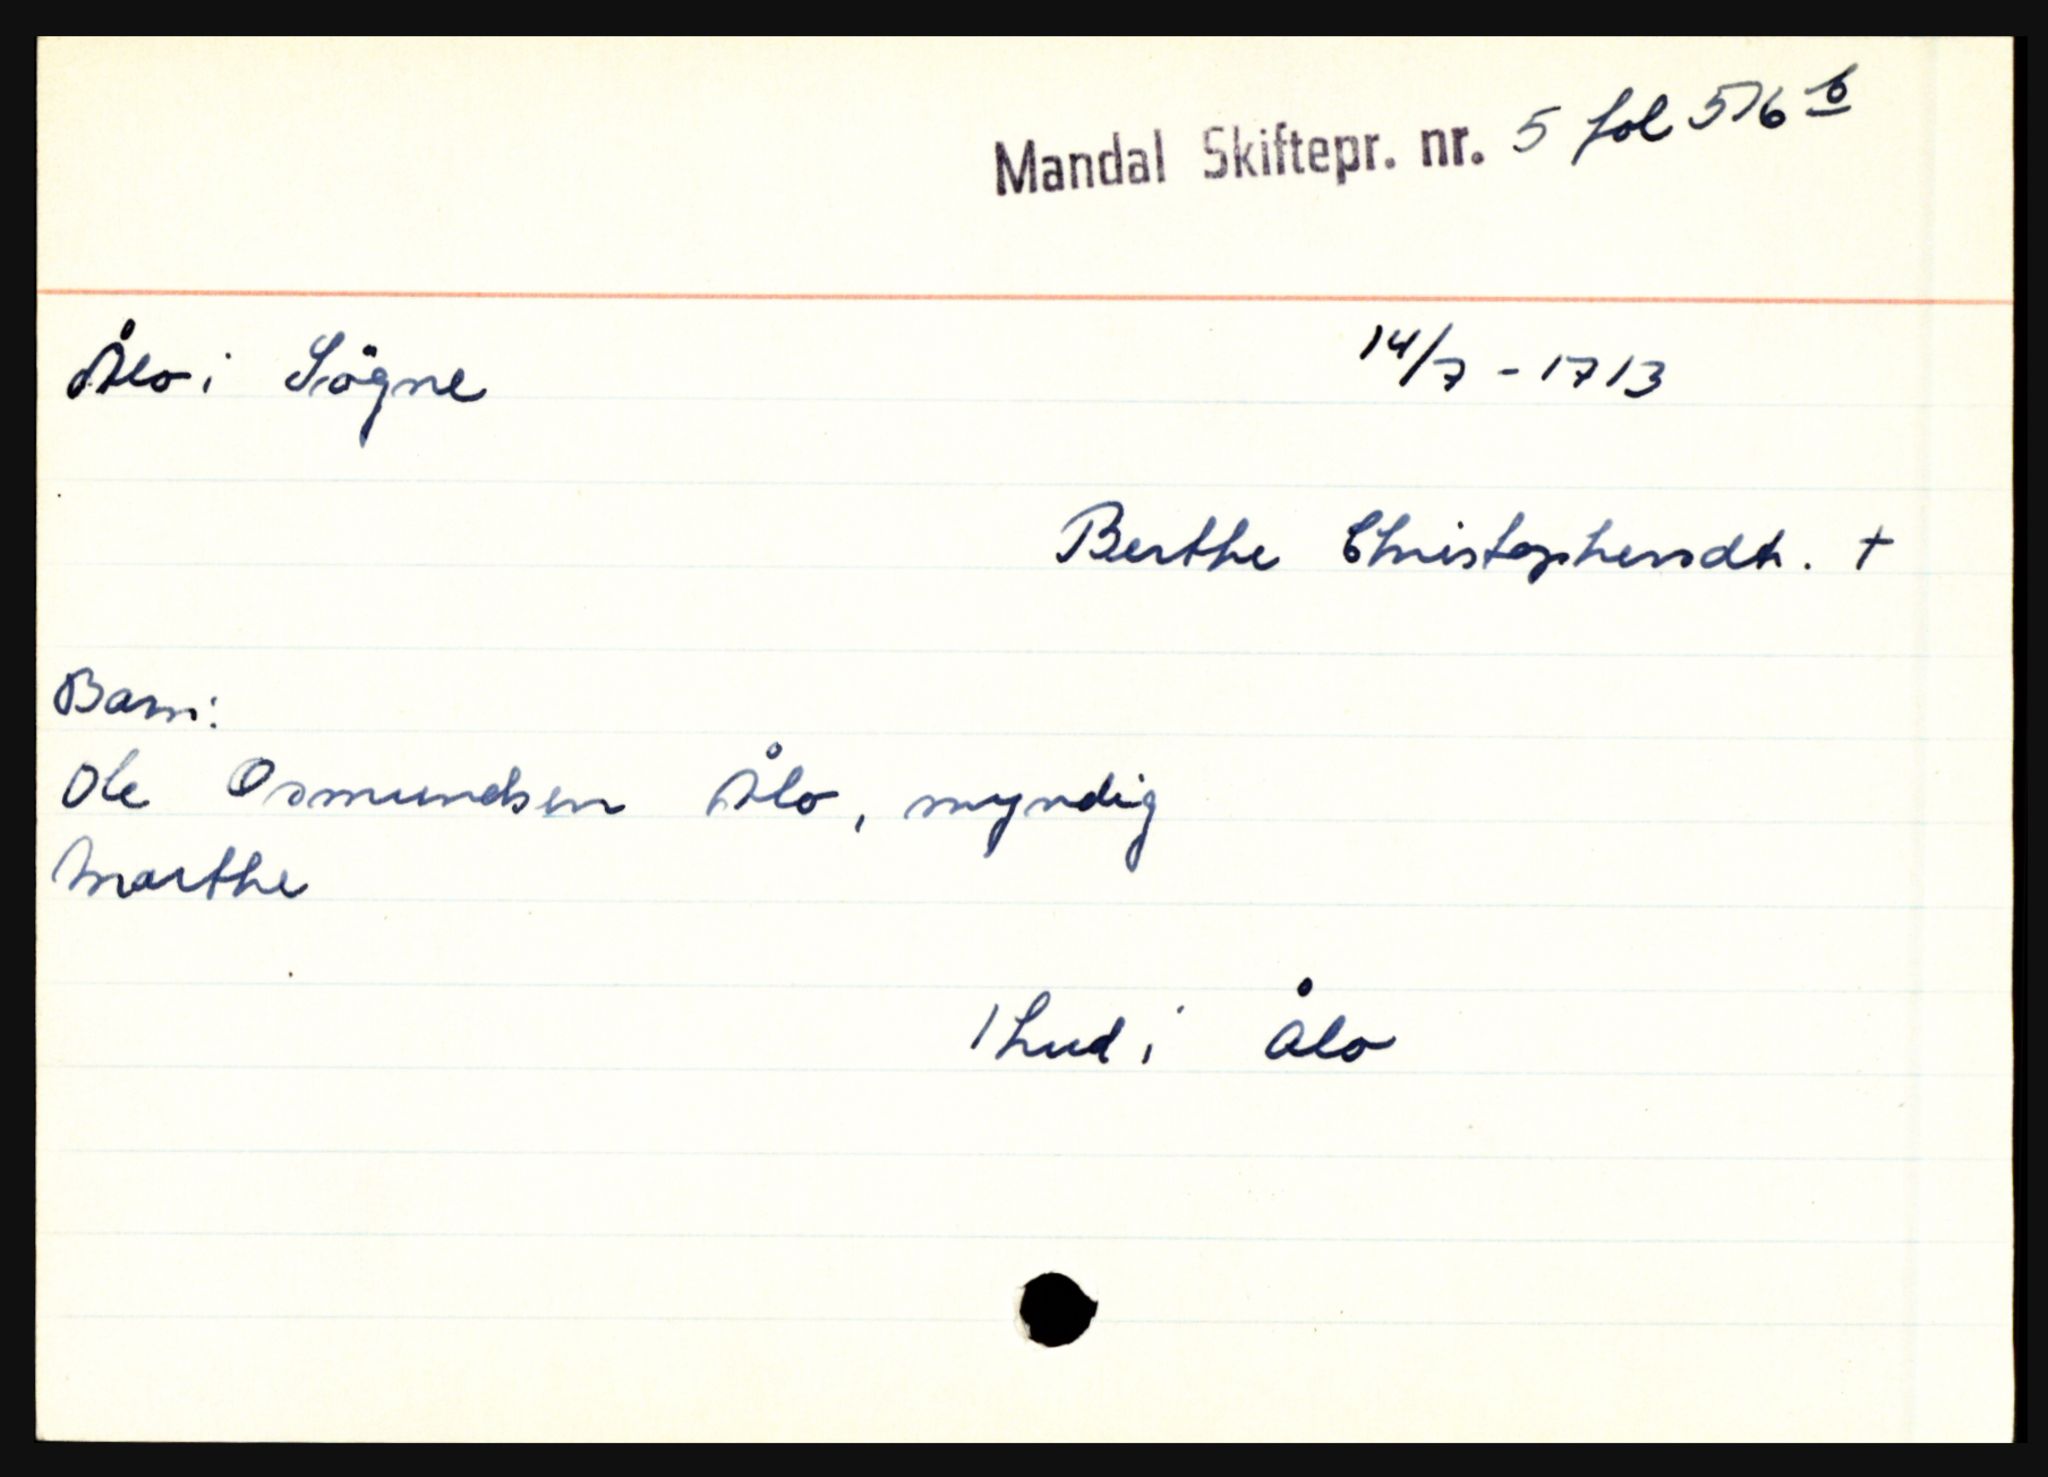 Mandal Skiftepr. nr. 5 fol 576 b
Ålo i Sögne 14/7 - 1713
Berthe Christophersdt. +
Barn:
Ole Osmundsen Ålo, myndig
Marthe
1 hud i Ålo